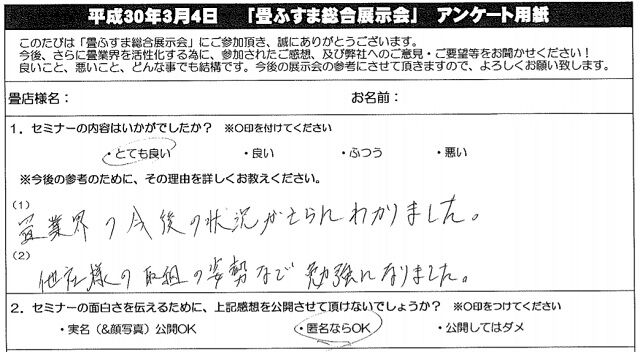 平成30年3月4日 「畳ふすま総合展示会」 アンケート用紙
このたびは「畳ふすま総合展示会」にご参加頂き、誠にありがとうございます。
今後、さらに畳業界を活性化する為に、参加されたご感想、及び弊社へのご意見・ご要望等をお聞かせください！
良いこと、悪いこと、どんな事でも結構です。今後の展示会の参考にさせて頂きますので、よろしくお願い致します。
畳店様名： お名前：
1．セミナーの内容はいかがでしたか？ ※○印を付けてください
・とても良い ・良い ・ふつう ・悪い
※今後の参考のために、その理由を詳しくお教えください。
(1)
畳業界の今後の状況がさらにわかりました。
(2)
他社様の取組の姿勢など勉強になりました。
2．セミナーの面白さを伝えるために、上記感想を公開させて頂けないでしょうか？ ※○印をつけてください
・実名（&顔写真）公開OK ・匿名ならOK ・公開してはダメ